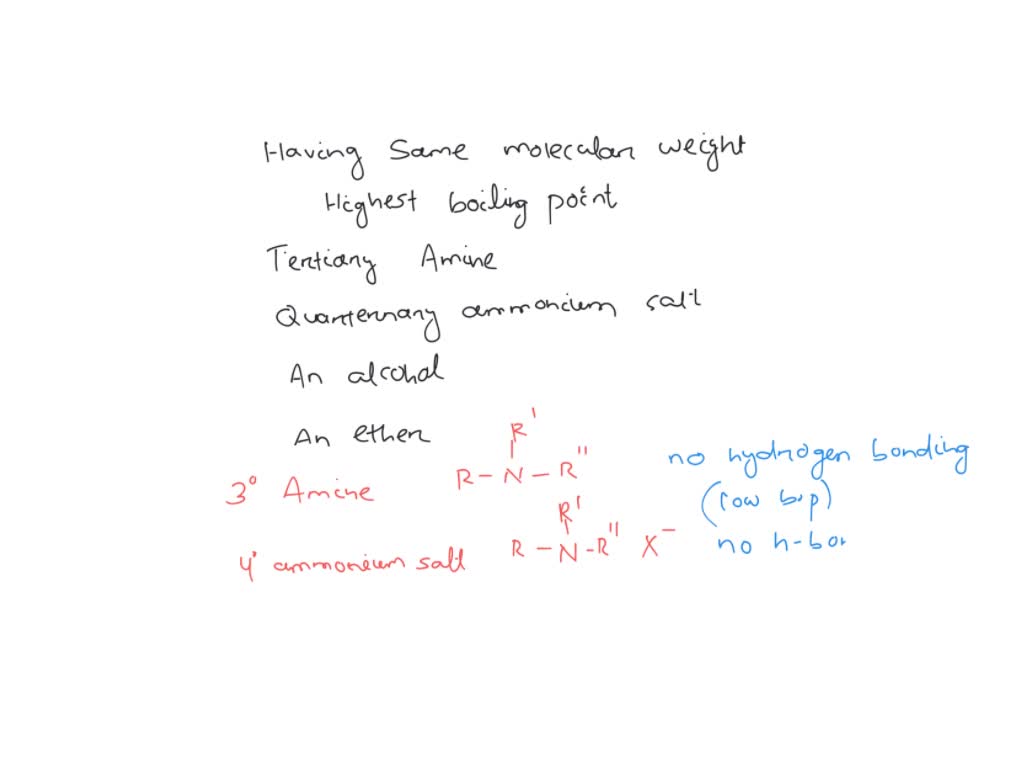 Having Same molecular weight
Highest boiling point
Tertiary Amine
Quanternary ammonium salt
An alcohol
An ether
R'
3° Amine R - N - R" no hydrogen bonding
(low b.p)
R'
4° ammonium salt R - N - R" X⁻ no h-bo